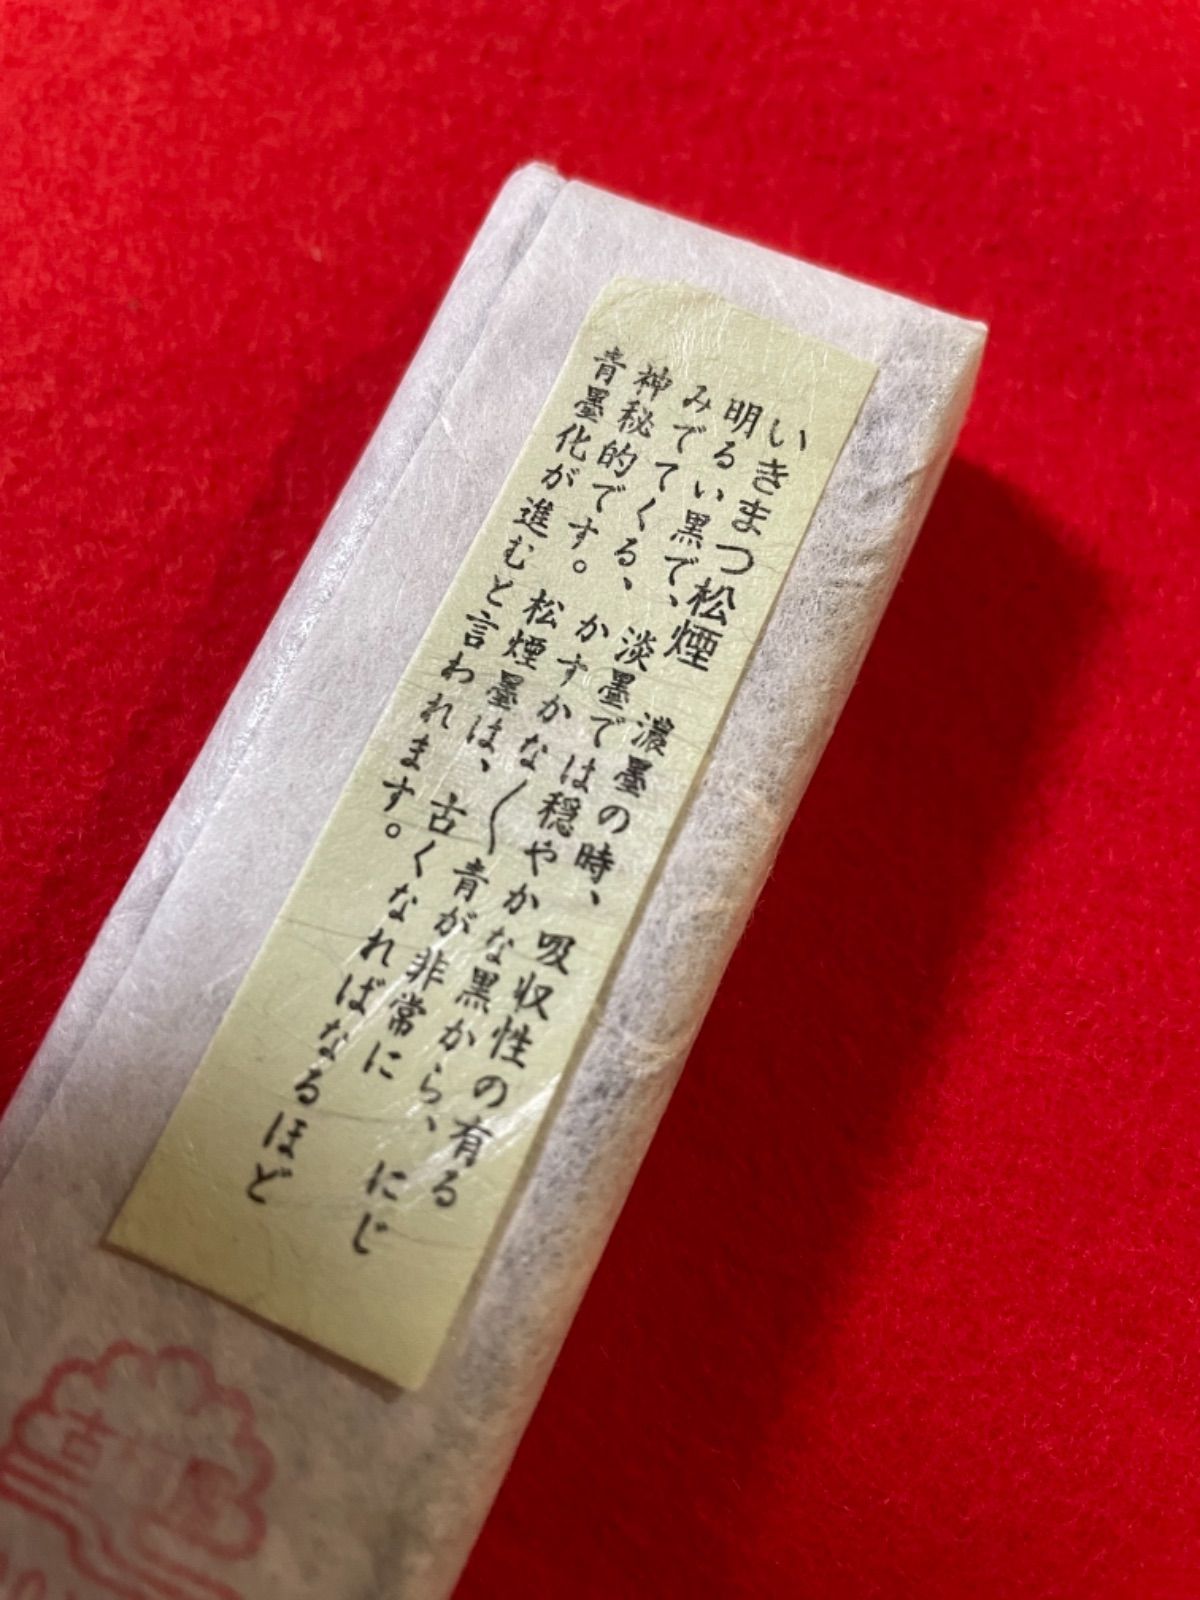 いきまつ松煙　濃墨の時、吸収性の有る
明るい黒で、淡墨では穏やかな黒から、にじ
みでてくる、かすかな〱青が非常に
神秘的です。松煙墨は、古くなればなるほど
青墨化が進むと言われます。
古梅園